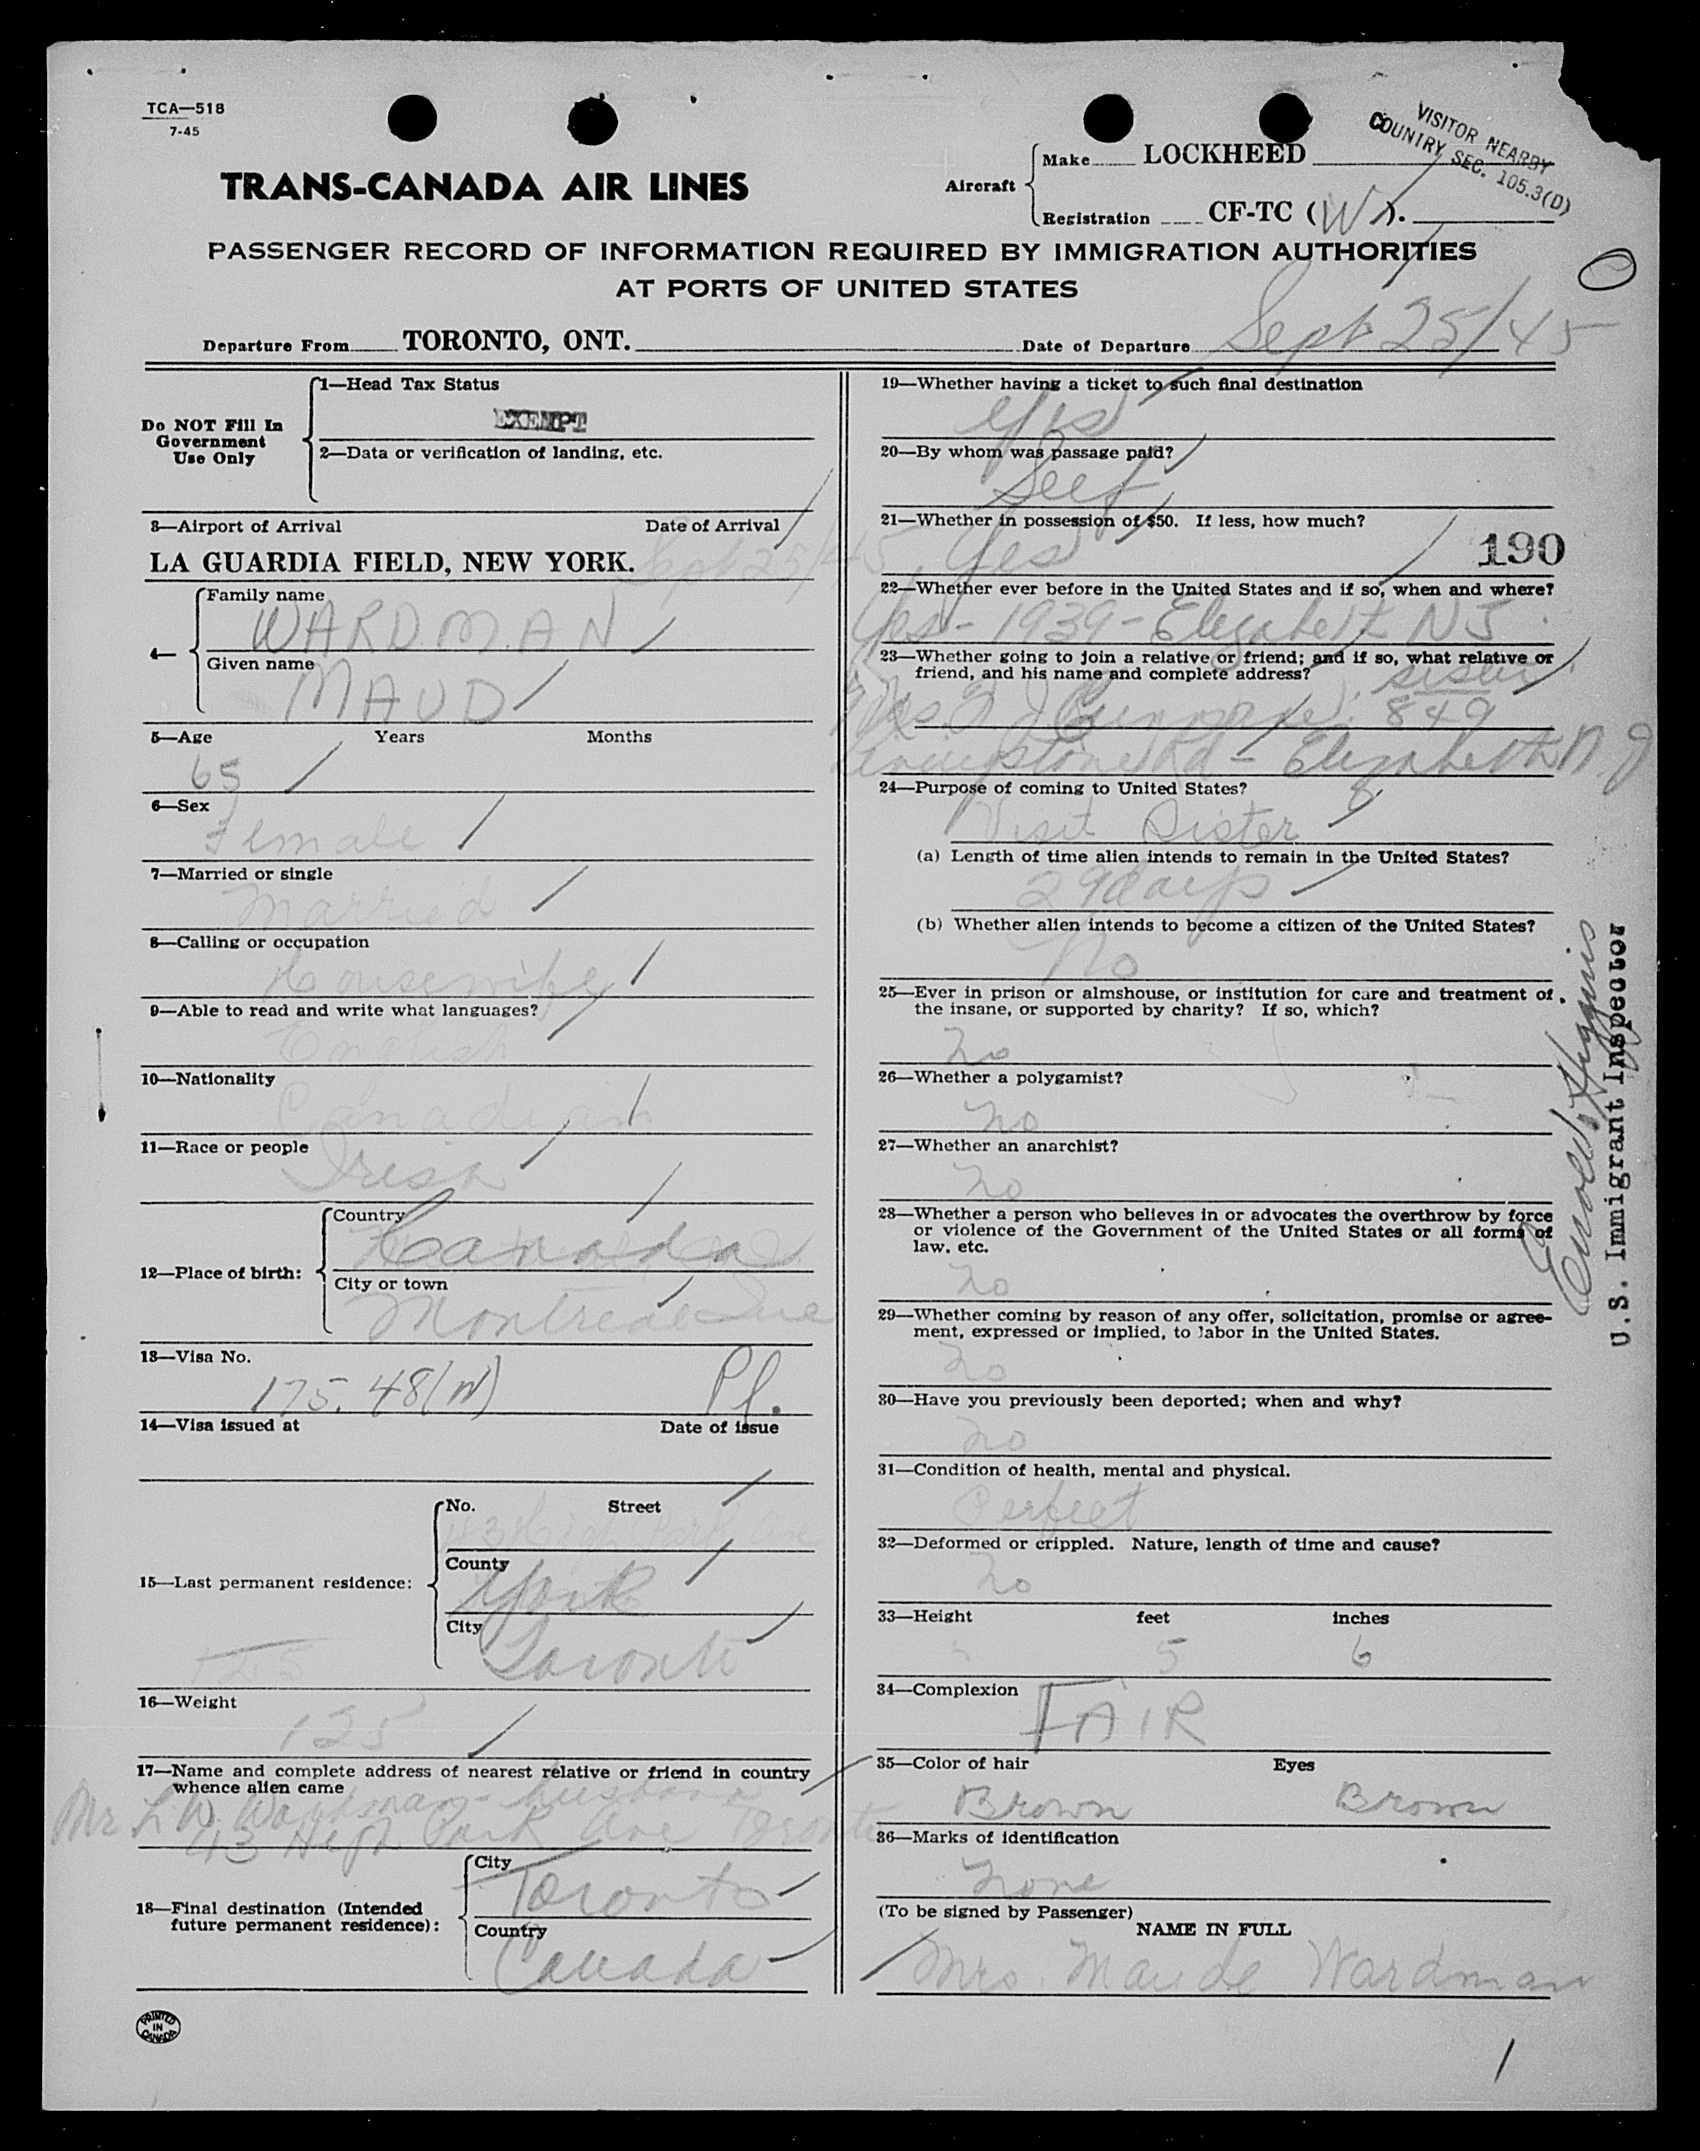 TCA—518
7-45
VISITOR NEARBY
COUNTRY SEC. 105.3(D)
TRANS-CANADA AIR LINES
Aircraft
Make LOCKHEED
Registration CF-TC (W).
PASSENGER RECORD OF INFORMATION REQUIRED BY IMMIGRATION AUTHORITIES
AT PORTS OF UNITED STATES
Departure From TORONTO, ONT. Date of Departure Sept 25/45
Do NOT Fill In
Government
Use Only
1—Head Tax Status
EXEMPT
2—Data or verification of landing, etc.
3—Airport of Arrival Date of Arrival
LA GUARDIA FIELD, NEW YORK. Sept 25/45
4—
Family name
WARDMAN
Given name
MAUD
5—Age Years Months
65
6—Sex
Female
7—Married or single
Married
8—Calling or occupation
Housewife
9—Able to read and write what languages?
English
10—Nationality
Canadian
11—Race or people
Irish
12—Place of birth:
Country
Canada
City or town
Montreal Que
13—Visa No.
175.48(N) Pl.
14—Visa issued at Date of issue
15—Last permanent residence:
No. Street
43 High Park Ave
County
York
City
Toronto
125
16—Weight
125
17—Name and complete address of nearest relative or friend in country
whence alien came
Mr L W Wardman - husband
43 High Park Ave Toronto
18—Final destination (Intended
future permanent residence):
City
Toronto
Country
Canada
PRINTED
IN
CANADA
19—Whether having a ticket to such final destination
Yes
20—By whom was passage paid?
Self
21—Whether in possession of $50. If less, how much?
Yes
190
22—Whether ever before in the United States and if so, when and where?
Yes - 1939 - Elizabeth NJ.
23—Whether going to join a relative or friend; and if so, what relative or
friend, and his name and complete address? sister
Mrs 849
Livingstone Rd - Elizabeth N.J
24—Purpose of coming to United States?
Visit Sister
(a) Length of time alien intends to remain in the United States?
29 days
(b) Whether alien intends to become a citizen of the United States?
No
25—Ever in prison or almshouse, or institution for care and treatment of
the insane, or supported by charity? If so, which?
No
26—Whether a polygamist?
No
27—Whether an anarchist?
No
28—Whether a person who believes in or advocates the overthrow by force
or violence of the Government of the United States or all forms of
law, etc.
No
29—Whether coming by reason of any offer, solicitation, promise or agree-
ment, expressed or implied, to labor in the United States.
No
30—Have you previously been deported; when and why?
No
31—Condition of health, mental and physical.
Perfect
32—Deformed or crippled. Nature, length of time and cause?
No
33—Height feet inches
5 6
34—Complexion
FAIR
35—Color of hair Eyes
Brown Brown
36—Marks of identification
None
(To be signed by Passenger)
NAME IN FULL
Mrs. Maude Wardman
U.S. Immigrant Inspector